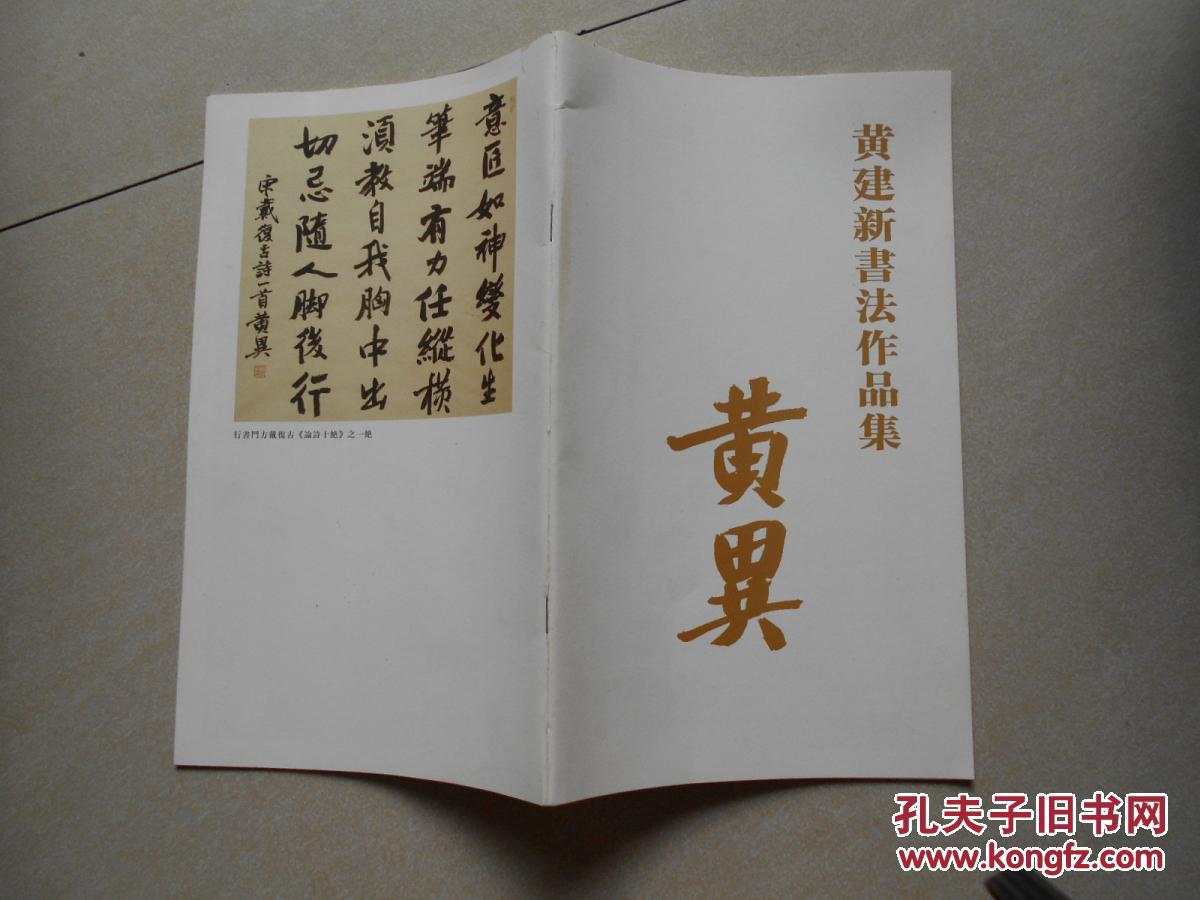 黄建新書法作品集
黄異
意匠如神變化生
筆端有力任縱橫
須教自我胸中出
切忌隨人脚後行
宋戴復古詩一首黄異
行書門方戴復古《論詩十絶》之一絶
孔夫子旧书网
www.kongfz.com